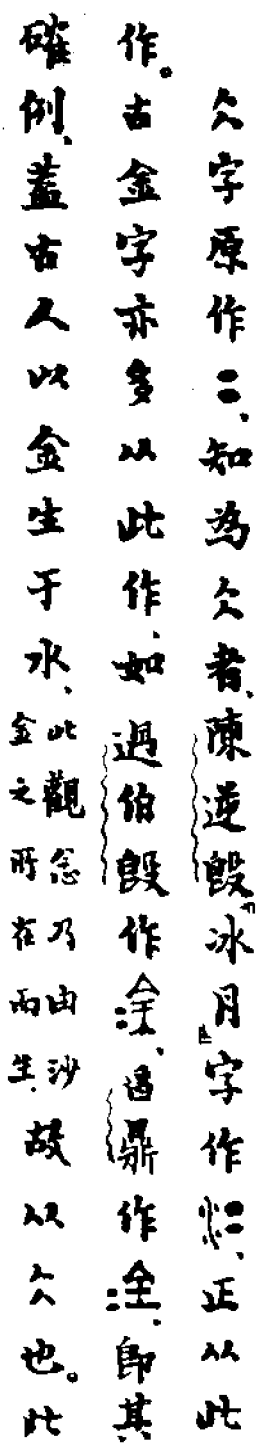 仌字原作、知為仌者、陳逆𣪘「冰月」字作、正从此
作。古金字亦多从此作、如過伯𣪘作、鼎作、即其
確例、蓋古人以金生于水、此觀念乃由沙金之所在而生、故从仌也。此